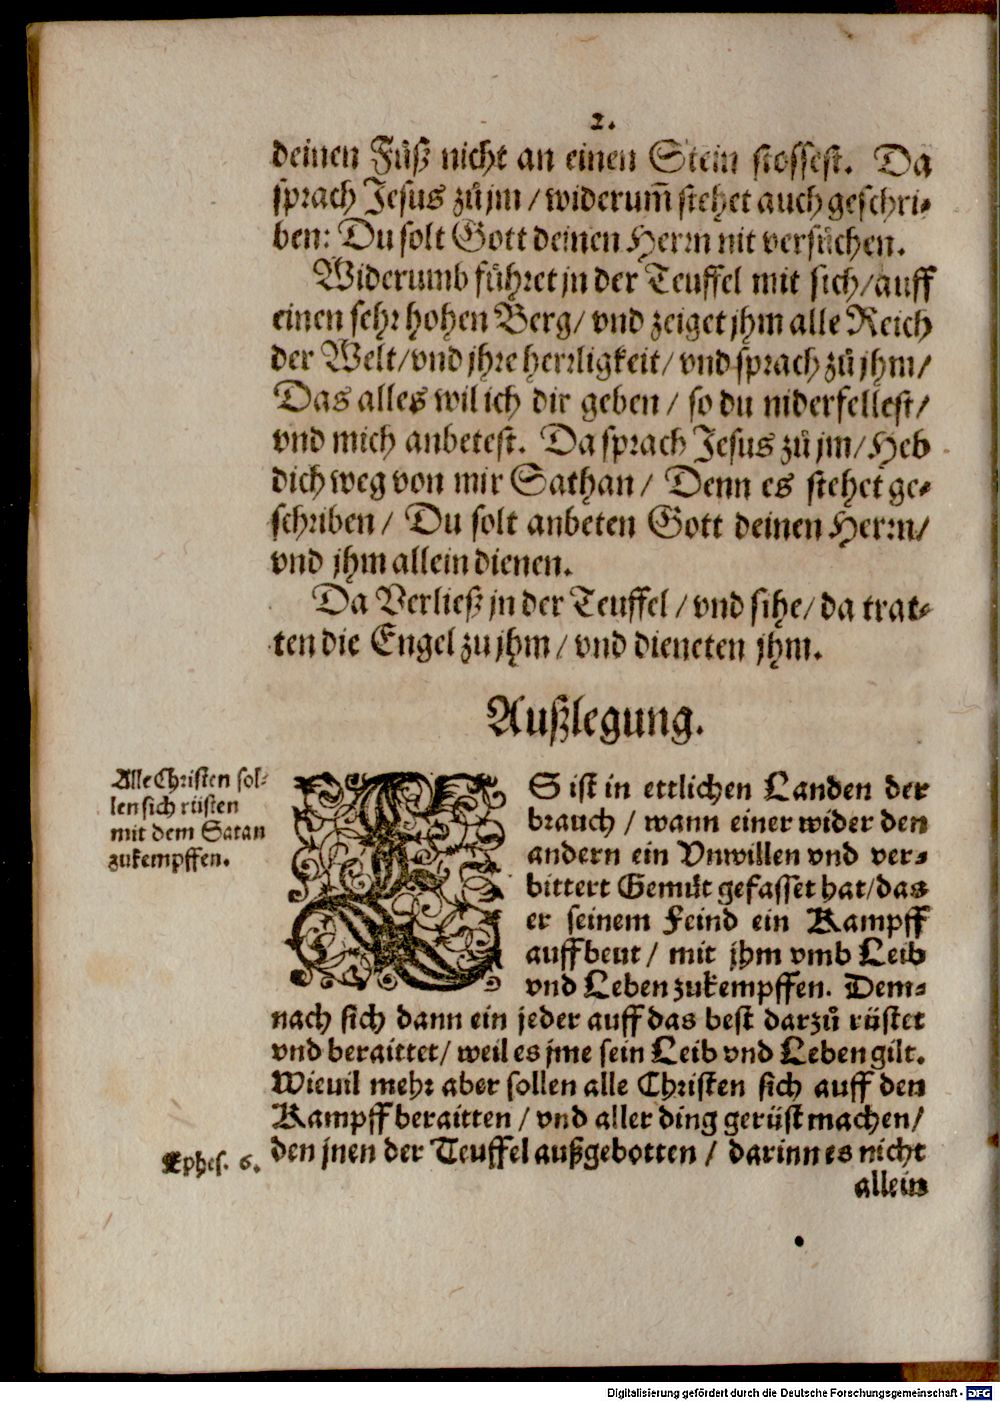 2.
deinen Fůß nicht an einen Stein stossest. Da
sprach Jesus zů jm / widerum̃ stehet auch geschri-
ben: Du solt Gott deinen Herrn nit versůchen.
Widerumb fůhret jn der Teuffel mit sich / auff
einen sehr hohen Berg / vnd zeiget jhm alle Reich
der Welt / vnd jhre herrligkeit / vnd sprach zů jhm /
Das alles wil ich dir geben / so du niderfellest /
vnd mich anbetest. Da sprach Jesus zů jm / Heb
dich weg von mir Sathan / Denn es stehet ge-
schriben / Du solt anbeten Gott deinen Herrn /
vnd jhm allein dienen.
Da Verließ jn der Teuffel / vnd sihe / da trat-
ten die Engel zu jhm / vnd dieneten jhm.
Außlegung.
Alle Christen sol-
len sich rüsten
mit dem Satan
zukempffen.
ES ist in ettlichen Landen der
brauch / wann einer wider den
andern ein Vnwillen vnd ver-
bittert Gemüt gefasset hat / das
er seinem Feind ein Kampff
auffbeut / mit jhm vmb Leib
vnd Leben zukempffen. Dem-
nach sich dann ein jeder auff das best darzů rüstet
vnd beraittet / weil es jme sein Leib vnd Leben gilt.
Wieuil mehr aber sollen alle Christen sich auff den
Kampff beraitten / vnd aller ding gerüst machen /
Ephes. 6.
den jnen der Teuffel außgebotten / darinn es nicht
allein
Digitalisierung gefördert durch die Deutsche Forschungsgemeinschaft - DFG